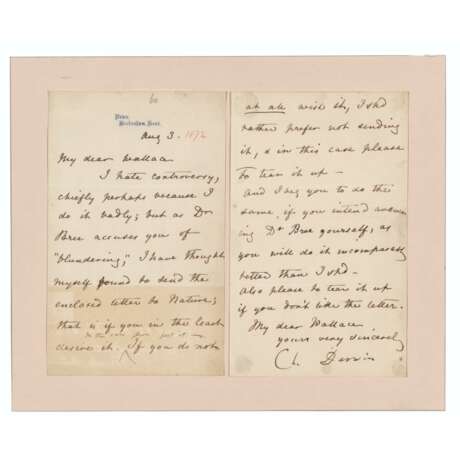 60
Down,
Beckenham, Kent.
Aug 3. 1872
My dear Wallace
I hate controversy,
chiefly perhaps because I
do it badly; but as Dr
Bree accuses you of
"blundering," I have thought
myself bound to send the
enclosed letter to Nature,
that is if you in the least
desire it. In this case please post it —
If you do not
at all wish it, I shd
rather prefer not sending
it, & in this case please
to tear it up —
And I beg you to do this
same, if you intend answer-
ing Dr Bree yourself, as
you will do it incomparably
better than I shd —
Also please to tear it up
if you don't like the letter.
My dear Wallace
yours very sincerely
Ch. Darwin